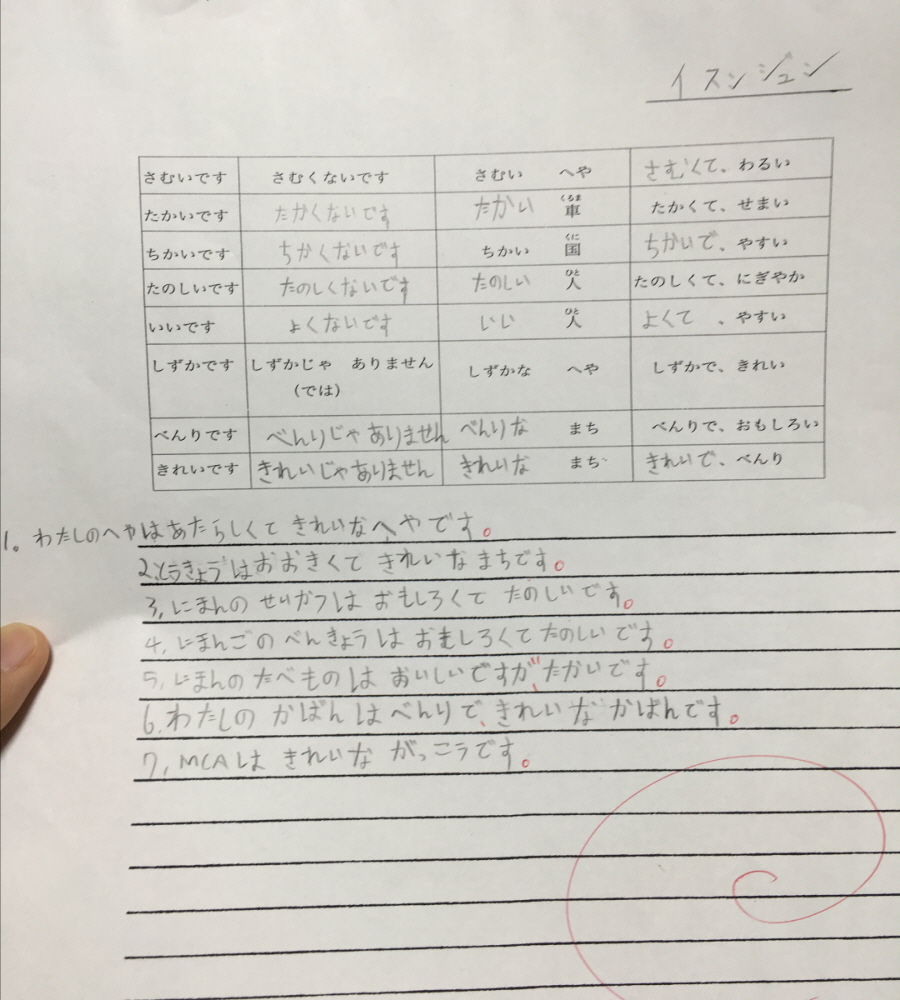 イスンジュン
さむいです さむくないです さむい へや さむくて、わるい
たかいです たかくないです たかい 車 くるま たかくて、せまい
ちかいです ちかくないです ちかい 国 くに ちかいで、やすい
たのしいです たのしくないです たのしい 人 ひと たのしくて、にぎやか
いいです よくないです いい 人 ひと よくて 、やすい
しずかです しずかじゃ ありません しずかな へや しずかで、きれい
(では)
べんりです べんりじゃありません べんりな まち べんりで、おもしろい
きれいです きれいじゃありません きれいな まち きれいで、べんり
1。わたしのへやはあたらしくて きれいなへやです。
2.とうきょうはおおきくて きれいな まちです。
3,にまんの せいかつは おもしろくて たのしいです。
4,にまんごの べんきょうは おもしろくて たのしいです。
5,にまんの たべものは おいしいですが、たかいです。
6.わたしの かばんは べんりで、きれいな かばんです。
7,MCAは きれいな がっこうです。